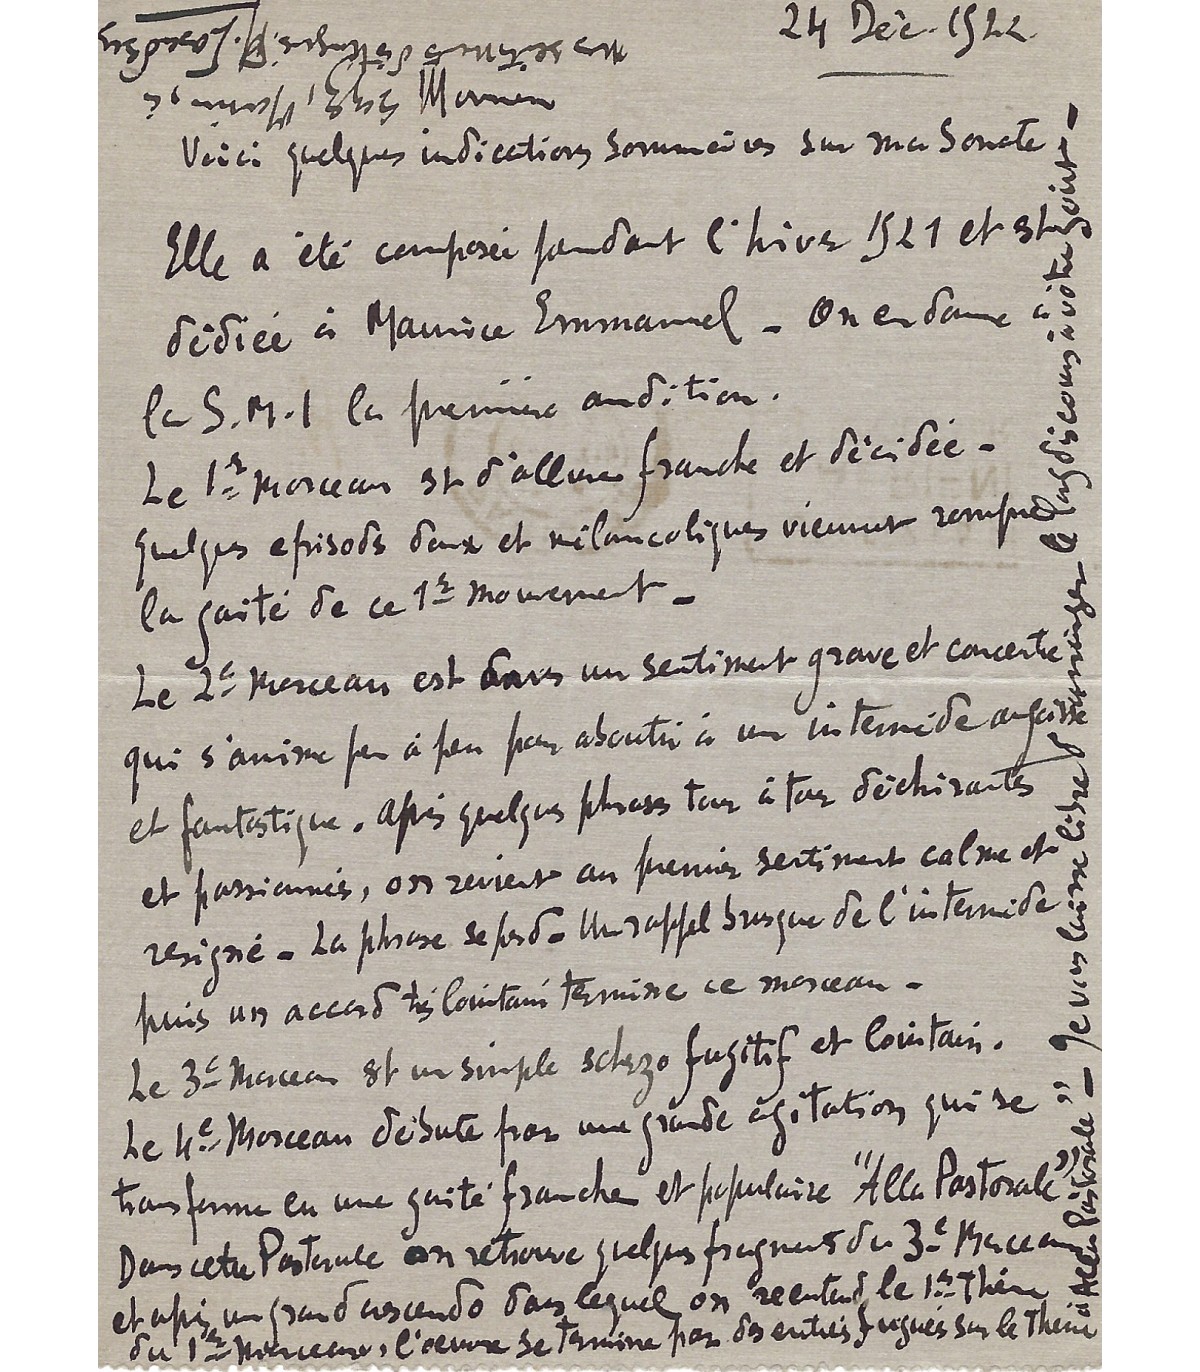 24 Déc. 1922
Voici quelques indications sommaires sur ma Sonate
Elle a été composée pendant l'hiver 1921 et est
dédiée à Maurice Emmanuel - On en donne à
la S.M.I la première audition.
Le 1er Morceau est d'allure franche et décidée -
quelques episods doux et mélancoliques viennent rompre
la gaité de ce 1er mouvement -
Le 2e Morceau est dans un sentiment grave et concerté
qui s'anime peu à peu pour aboutir à un intermède angoissé
et fantastique. Après quelques phrases tour à tour déchirantes
et passionnées, on revient au premier sentiment calme et
resigné - La phrase se perd - Un rappel brusque de l'intermède
puis un accord très lointain termine ce morceau -
Le 3e Morceau est un simple scherzo fugitif et lointain.
Le 4e Morceau débute par une grande agitation qui se
transforme en une gaité franche et populaire "Alla Pastorale"
Dans cette Pastorale on retrouve quelques fragments du 3e Morceau
et après un grand crescendo dans lequel on reentend le 1er Thème
du 1er Morceau, l'oeuvre se termine par des entrées fuguées sur le thème
"Alla Pastorale" - Je vous laisse libre d'arranger le discours à votre goût -